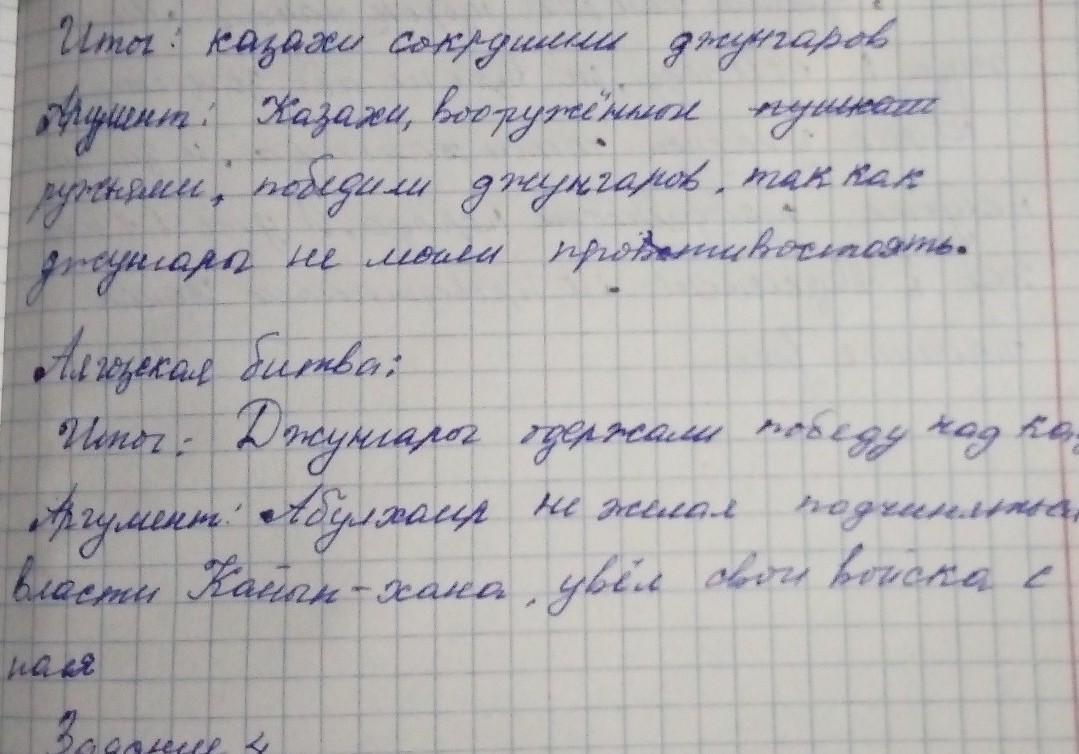 Итог: казахи сокрушили джунгаров
Аргумент: Казахи, вооружённые пушками
ружьями, победили джунгаров, так как
джунгары не могли противостоять.
Аягозская битва:
Итог: Джунгары одержали победу над каз
Аргумент: Абулхаир не желая подчиняться
власти Кайып-хана, увёл свои войска с
поля
Задание 4